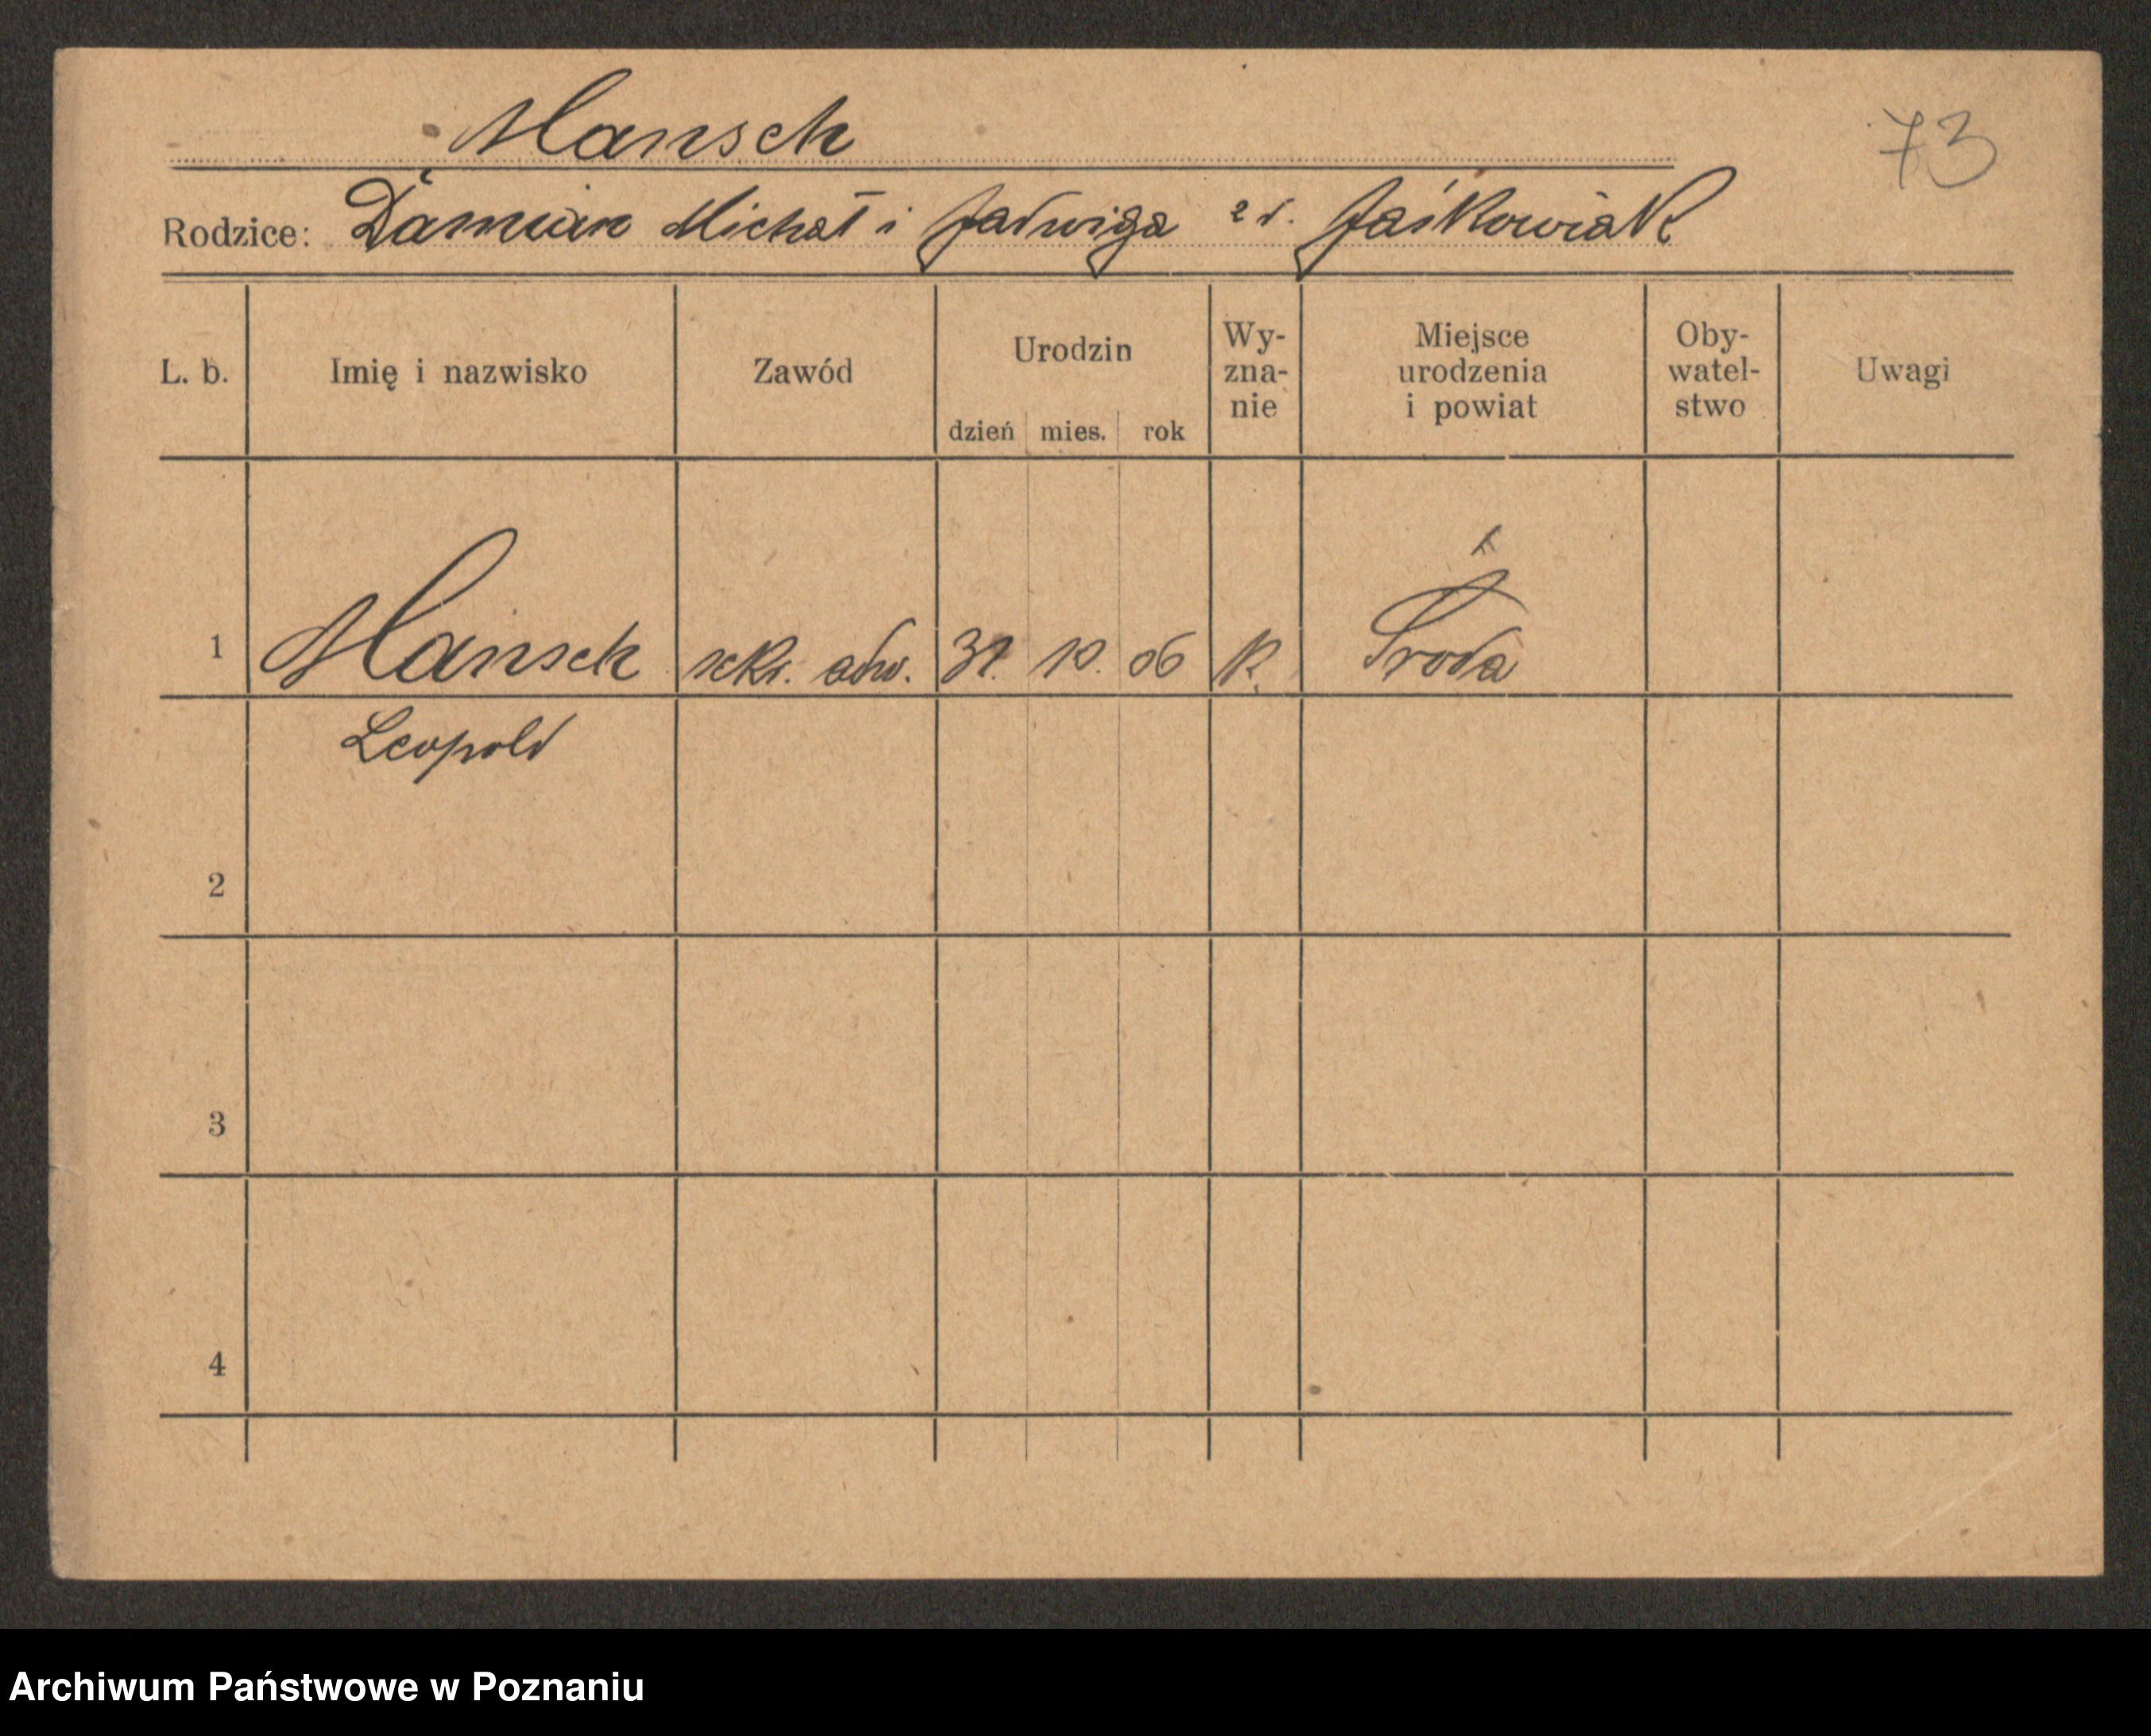 Mansch
73
Rodzice: Damian Michał i Jadwiga z d. Jaśkowiak
L. b.
Imię i nazwisko
Zawód
Urodzin
dzień mies. rok
Wy-
zna-
nie
Miejsce
urodzenia
i powiat
Oby-
watel-
stwo
Uwagi
1 Mansch sekr. adw. 31. 10. 06 k. Środa
Leopold
2
3
4
Archiwum Państwowe w Poznaniu